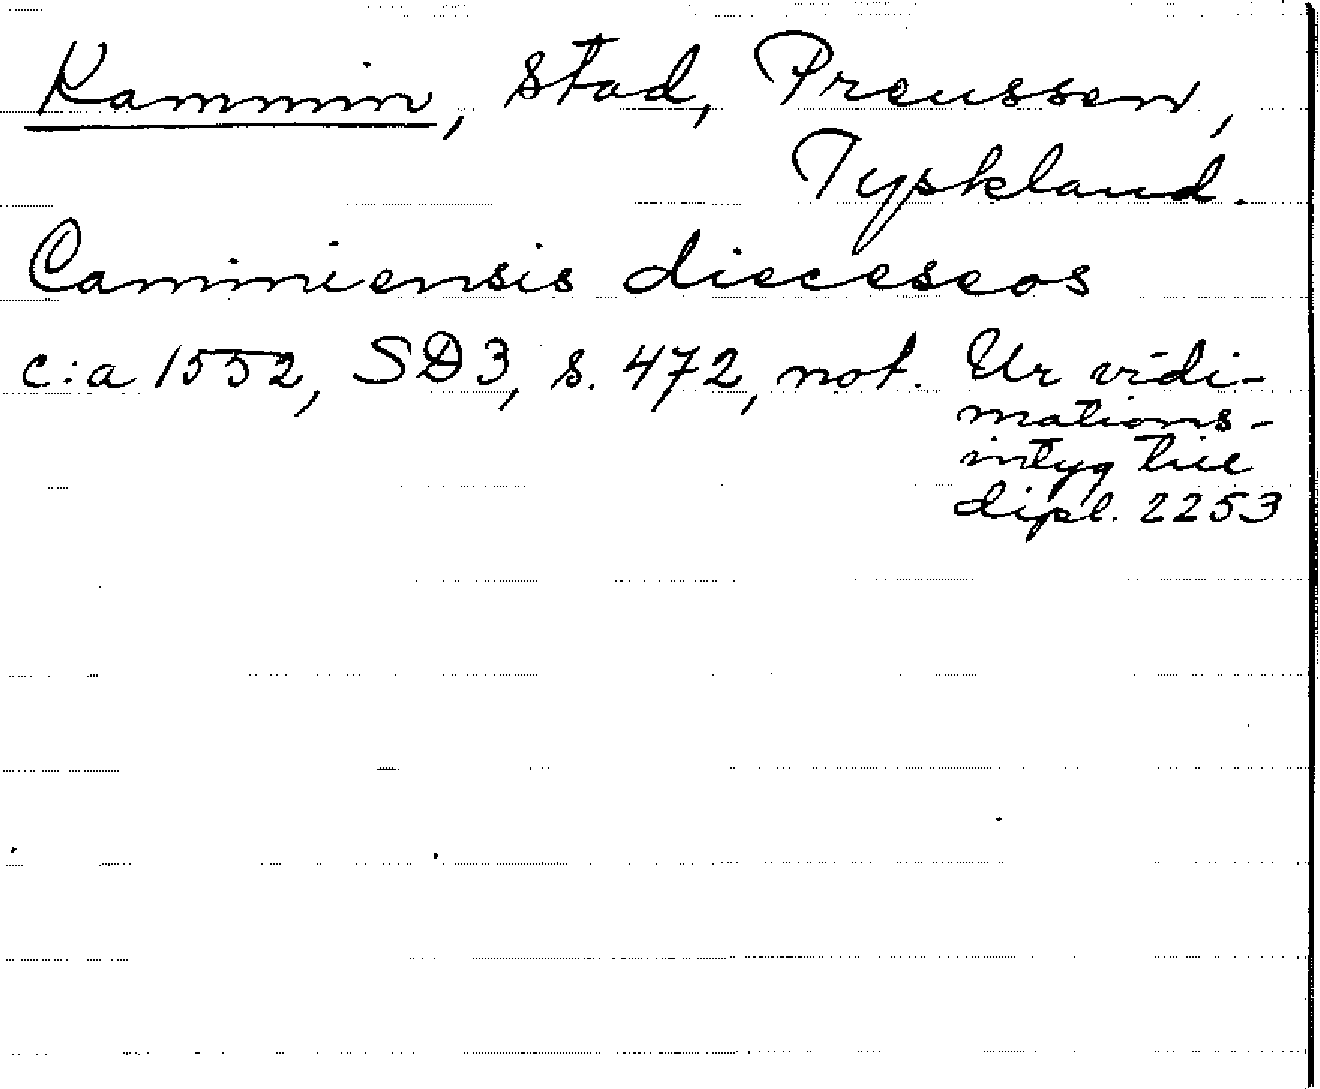 Kammin, stad, Preussen,
Tyskland.
Caminiensis dieceseos
c:a 1552, SD3, s. 472, not. Ur vidi-
mations-
intyg till
dipl. 2253